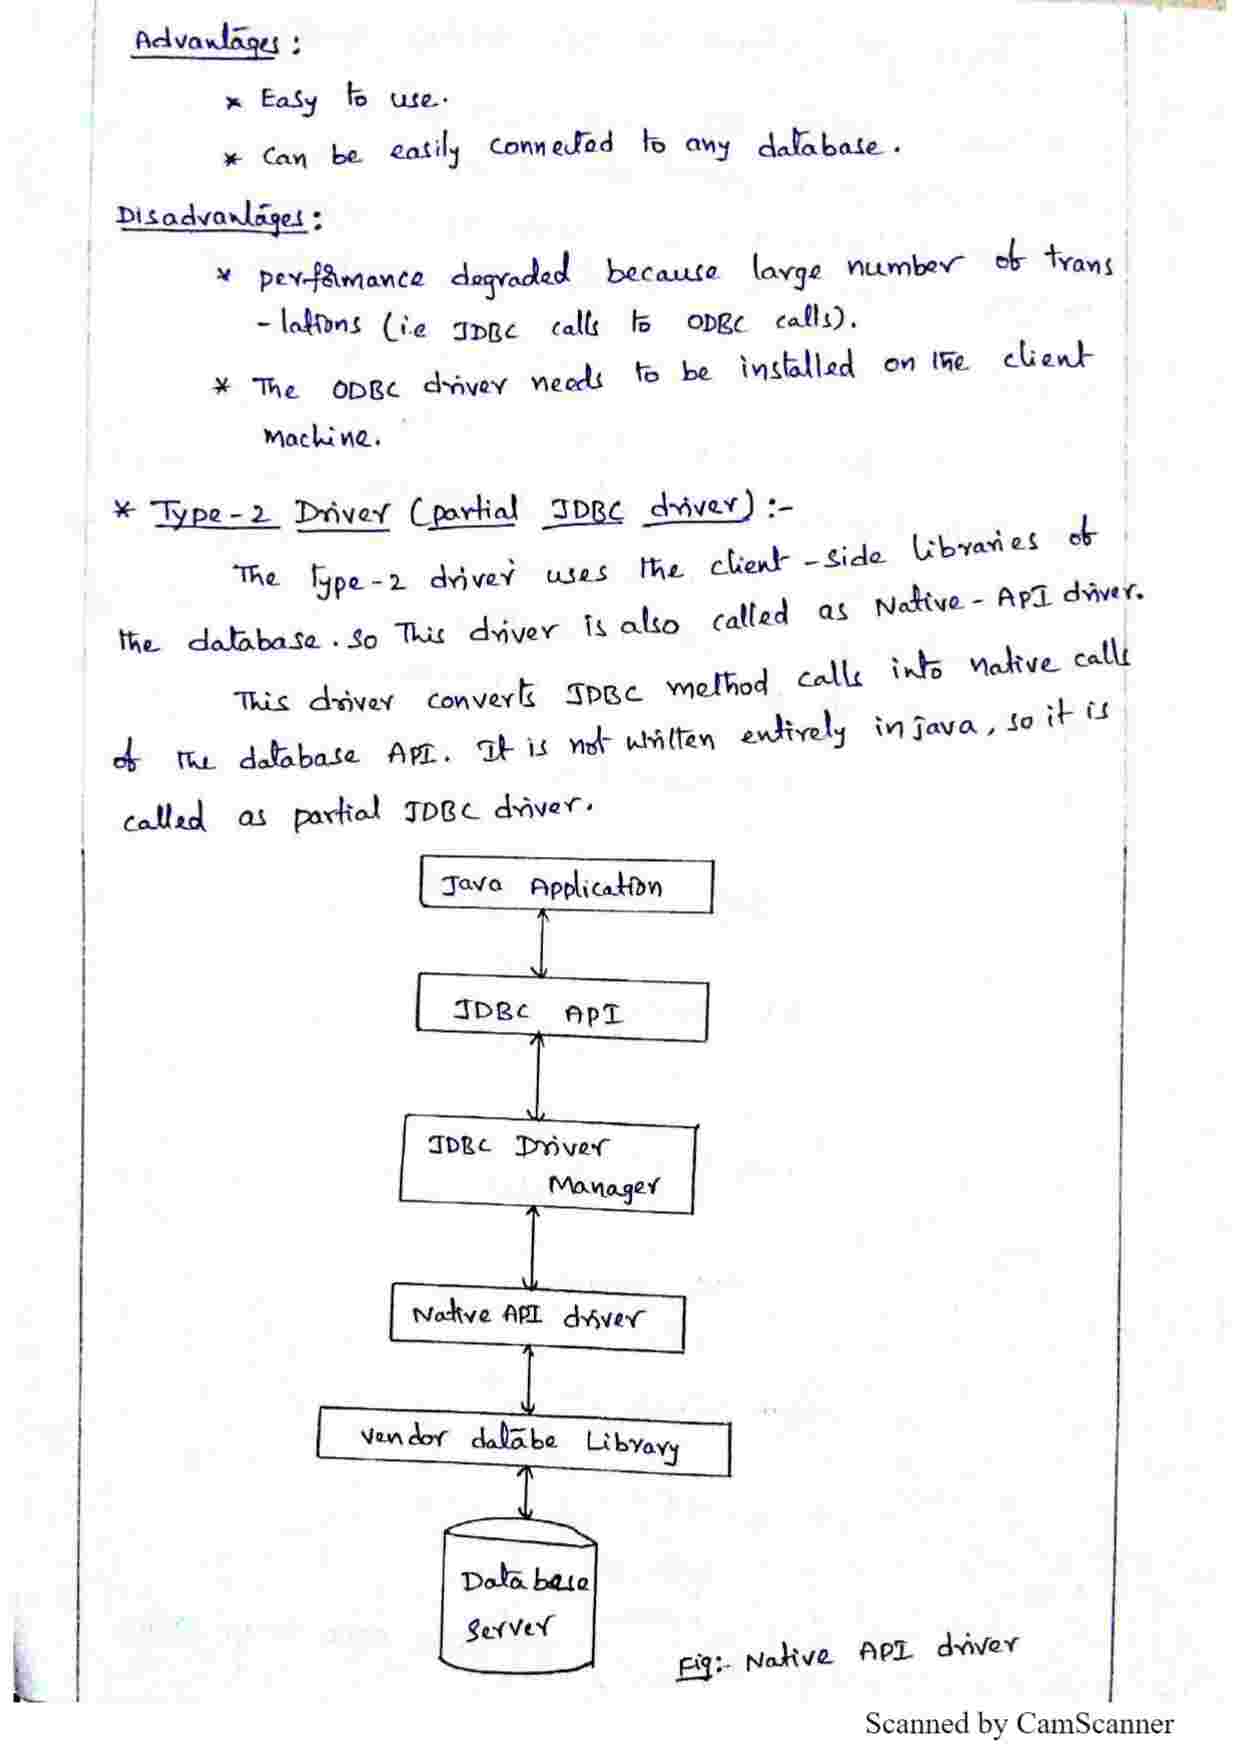 Advantages :
* Easy to use.
* Can be easily connected to any database.
Disadvantages :
* performance degraded because large number of trans
- lations (i.e JDBC calls to ODBC calls).
* The ODBC driver needs to be installed on the client
machine.
* Type-2 Driver (partial JDBC driver) :-
The Type-2 driver uses the client-side libraries of
the database. so This driver is also called as Native-API driver.
This driver converts JDBC method calls into native calls
of the database API. It is not written entirely in java, so it is
called as partial JDBC driver.
Java Application
JDBC API
JDBC Driver
Manager
Native API driver
vendor databe Library
Database
Server
Fig:- Native API driver
Scanned by CamScanner